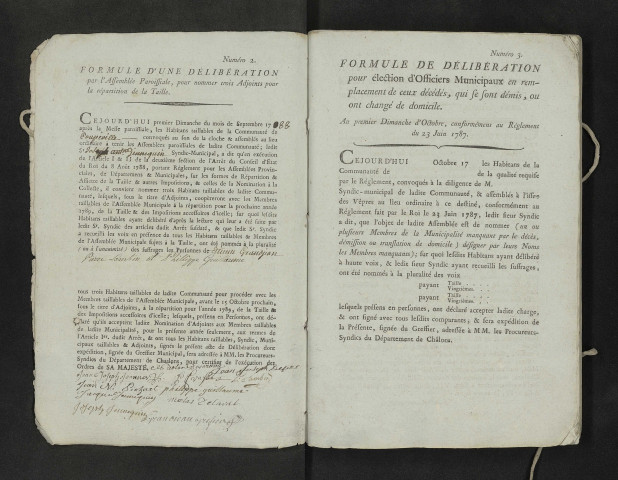 Numéro 2.
FORMULE D'UNE DÉLIBÉRATION
par l'Assemblée Paroissiale, pour nommer trois Adjoints pour
la répartition de la Taille.
CEJOURD'HUI premier Dimanche du mois de Septembre 1788
après la Messe paroissiale, les Habitans taillables de la Communauté de
convoqués au son de la cloche &amp; assemblés au lieu
ordinaire à tenir les Assemblées paroissiales de ladite Communauté; ledit
Syndic-Municipal, a dit qu'en exécution
de l'Article 8 &amp; 11 de la deuxieme section de l'Arrêt du Conseil d'État
du Roi du 8 Août 1788, portant Règlement pour les Assemblées Provin-
ciales, de Départemens &amp; Municipales, sur les formes de Répartition &amp;
Assiette de la Taille &amp; autres Impositions, &amp; celles de la Nomination à la
Collecte, il convient nommer trois Habitans taillables de ladite Commu-
nauté, lesquels, sous le titre d'Adjoints, coopéreront avec les Membres
taillables de l'Assemblée Municipale à la répartition pour la prochaine année
1789, de la Taille &amp; des Impositions accessoires d'icelle; sur quoi lesdits
Habitans ayant délibéré d'après la lecture qui leur a été faite par
ledit Sr. Syndic des articles dudit Arrêt susdaté, &amp; que ledit Sr. Syndic
a recueilli les voix en présence de tous les Habitans taillables &amp; Membres
de l'Assemblée Municipale sujets à la Taille, ont été nommés à la pluralité
(ou à l'unanimité) des suffrages les Personnes de
et Philippe Guillaume
tous trois Habitans taillables de ladite Communauté pour procéder avec les
Membres taillables de l'Assemblée Municipale, avant le 15 Octobre prochain,
sous le titre d'Adjoints, à la répartition pour l'année 1789, de la Taille &amp;
des Impositions accessoires d'icelle; lesquels, présens en Personnes, ont dé-
claré qu'ils acceptent ladite Nomination d'Adjoints aux Membres taillables
de ladite Municipalité, pour la présente année seulement, aux termes de
l'Article 1er. dudit Arrêt, &amp; ont tous les Habitans taillables, Syndic, Muni-
cipaux taillables &amp; Adjoints, signés après l'acte de Délibération dont
expédition, signée du Greffier Municipal, sera adressée à MM. les Procureurs-
Syndics du Département de Chaalons, pour certifier de l'exécution des
Ordres de SA MAJESTÉ.
philippe guillaume
Numéro 3.
FORMULE DE DÉLIBÉRATION
pour élection d'Officiers Municipaux en rem-
placement de ceux décédés, qui se sont démis, ou
ont changé de domicile.
Au premier Dimanche d'Octobre, conformément au Règlement
du 23 Juin 1787.
CEJOURD'HUI Octobre 17 les Habitans de la
Communauté de de la qualité requise
par le Réglement, convoqués à la diligence de M.
Syndic-municipal de ladite Communauté, &amp; assemblés à l'issue
des Vêpres au lieu ordinaire à ce destiné, conformément au
Réglement fait par le Roi le 23 Juin 1787, ledit sieur Syndic
a dit, que l'objet de ladite Assemblée est de nommer (un ou
plusieurs Membres de la Municipalité manquant par le décès,
démission ou translation de domicile) désigner par leurs Noms
les Membres manquans; sur quoi lesdits Habitans ayant délibéré
à haute voix, &amp; ledit sieur Syndic ayant recueilli les suffrages,
ont été nommés à la pluralité des voix
payant Taille
Vingtièmes
payant Taille
Vingtièmes
lesquels présens en personnes, ont déclaré accepter ladite charge,
&amp; ont signé avec tous lesdits comparans, &amp; sera expédition de
la Présente, signée du Greffier, adressée à MM. les Procureurs-
Syndics du Département de Châlons.